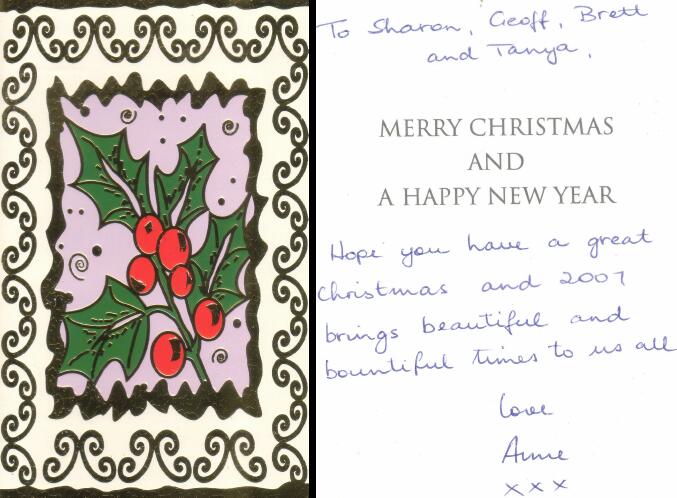 To Sharon, Geoff, Brett
and Tanya,
MERRY CHRISTMAS
AND
A HAPPY NEW YEAR
Hope you have a great
Christmas and 2007
brings beautiful and
bountiful times to us all
love
Anne
xxx